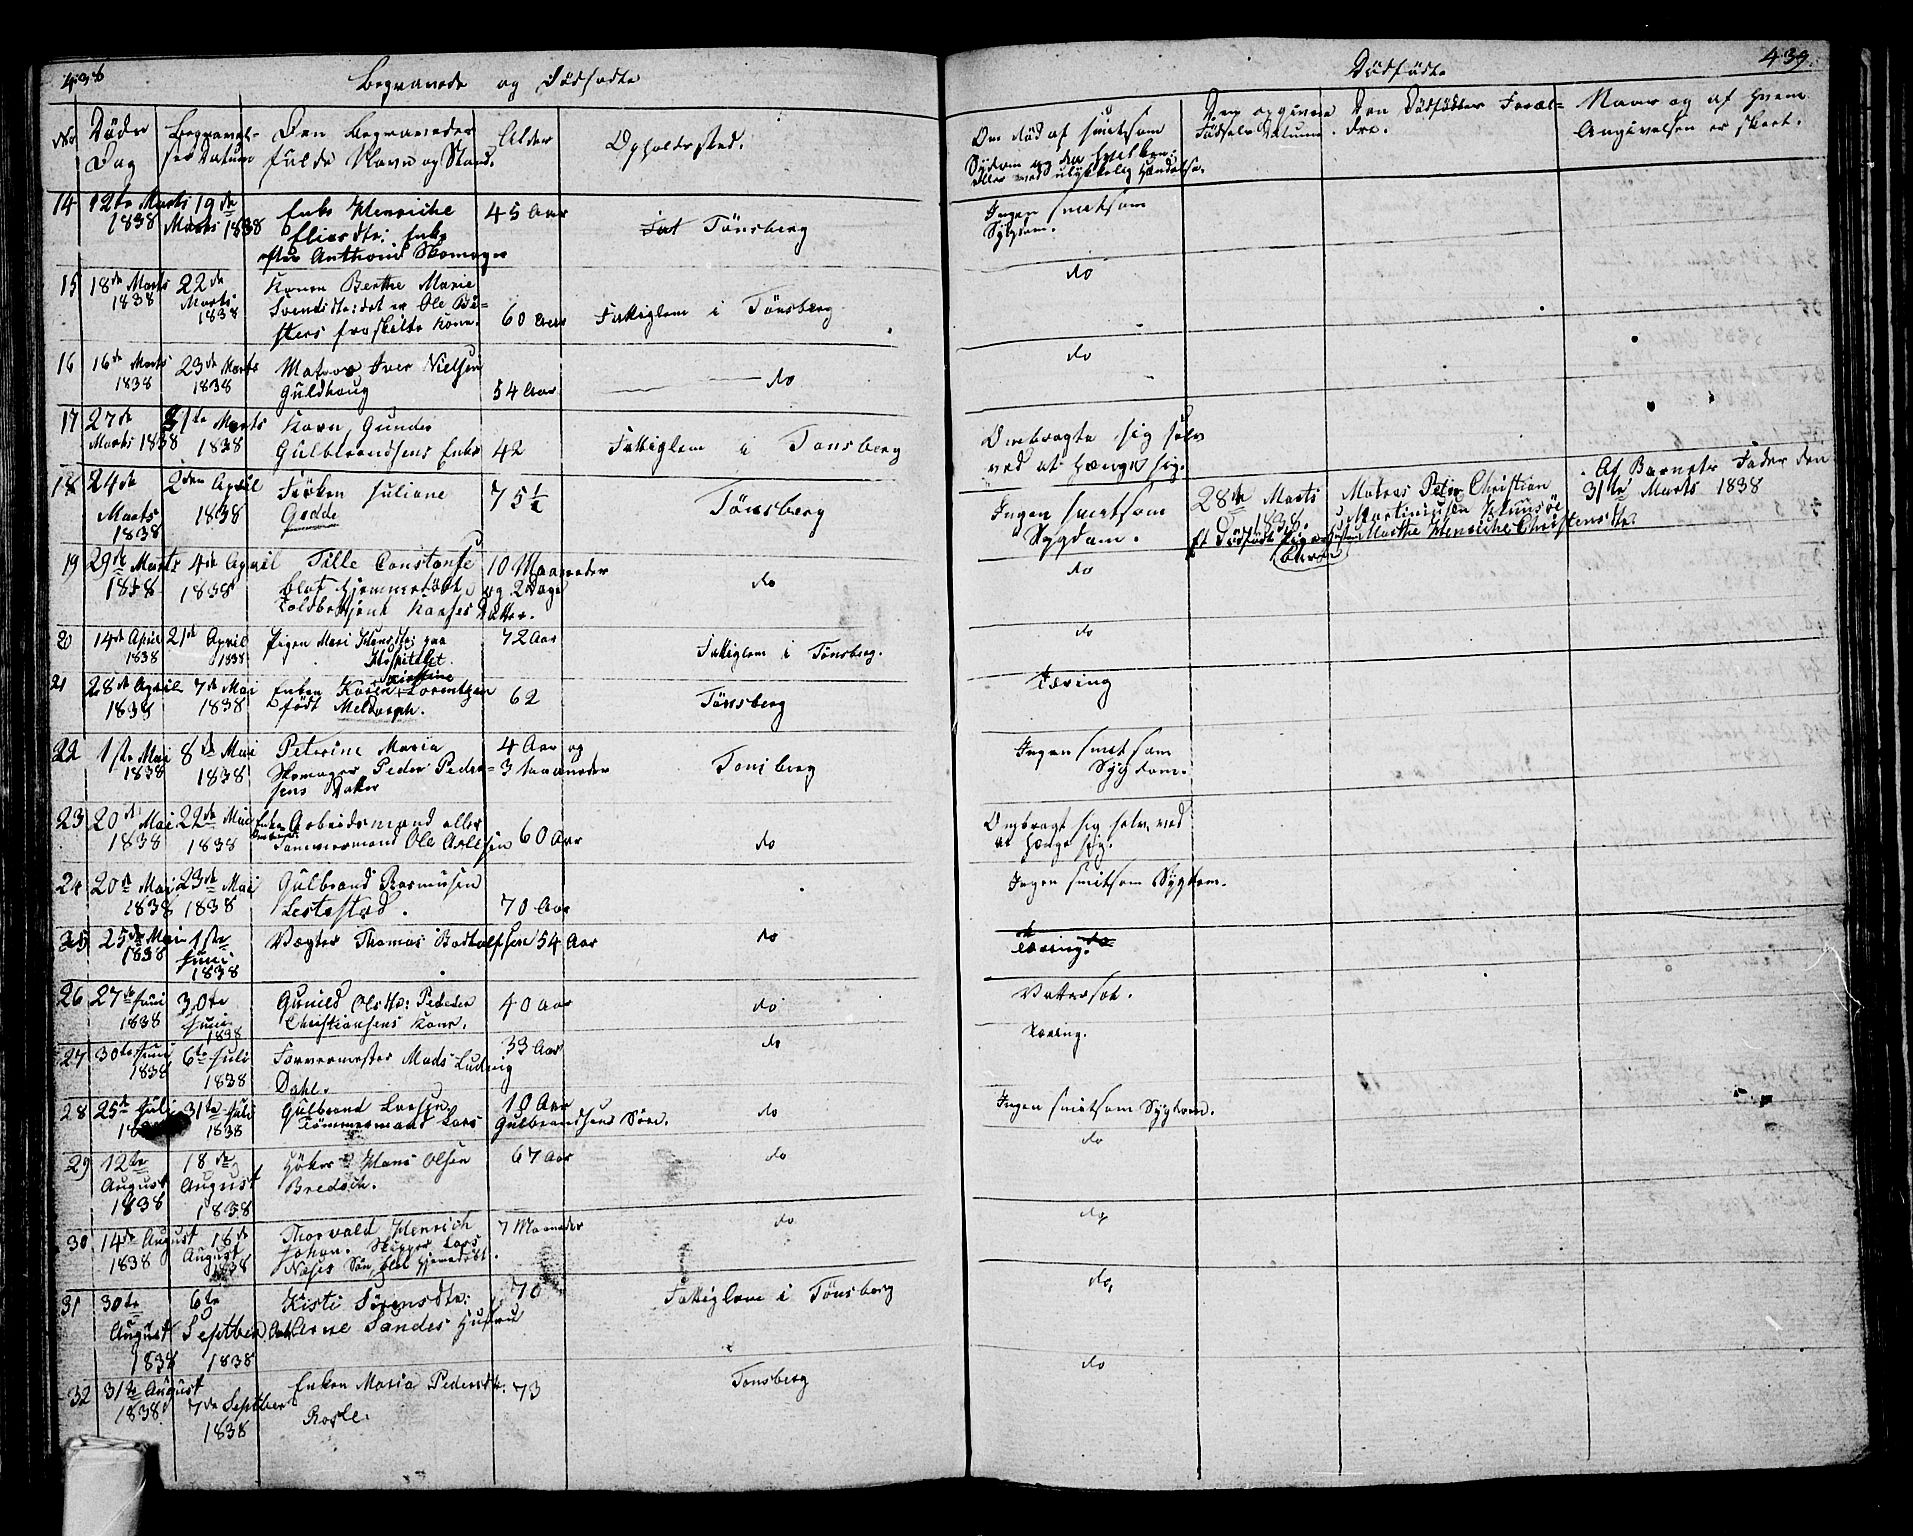 438
Begravede og Dødfødte
No
Døds
Dag
Begravel-
ses Datum
Den Begravedes
fulde Navn og Stand.
Alder
Opholdssted.
14 12te Marts 1838 19de Marts 1838 Enke Henriche
Eliesdtr: Enke
efter Anthoni Skomager 45 Aar Tönsberg
15 18de Marts 1838 22de Marts 1838 Konen Berthe Marie
Svendsdtr: det er Ole Bö-
kers fraskilte Kone. 60 Aar Fattiglem i Tönsberg
16 16de Marts 1838 23de Marts 1838 Matros Iver Nielsen
Guldhaug 54 Aar do
17 27de Marts 1838 31te Marts 1838 Karn Gunder
Gulbrandsens Enke 42 Fattiglem i Tonsberg
18 24de Marts 1838 2den April 1838 Fröken Juliane
Gedde 75 ½ Tönsberg
19 29de Marts 1838 4de April 1838 Tille Constanse
blot hjemmedöbt
Toldbetjent Hanses Datter. 10 Maaneder
og 2 Dage do
20 14de April 1838 21de April 1838 Pigen Mari Hansdtr: paa
Hospitalet. 72 Aar Fattiglem i Tönsberg.
21 28de April 1838 7de Mai 1838 Enken Karen Kirstine Lorentzen
födt Meldorph. 62 Tönsberg
22 1ste Mai 1838 8de Mai 1838 Petrine Maria
Skomager Peder Peder-
sens Datter 4 Aar og
3 Maaneder Tonsberg
23 20de Mai 1838 22de Mai 1838 Arbeidsmand eller
Tömmermand Ole Arlesen 60 Aar do
24 20de Mai 1838 23de Mai 1838 Gulbrand Rasmusen
Lestestad. 70 Aar
25 25de Mai 1838 1ste Juni 1838 Vægter Thomas Bodholfsen 54 Aar do
26 27de Juni 1838 30te Juni 1838 Gunild Olsdtr: Peder
Christiansens Kone. 40 Aar do
27 30te Juni 1838 6te Juli 1838 Farvermester Mads Ludvig
Dahl. 33 Aar do
28 25de Juli 1838 31te Juli 1838 Gulbrand Larsen
Tömmermand Lars Gulbrandsens Sön. 10 Aar do
29 12te August 1838 18de August 1838 Höker Hans Olsen
Bredoch. 67 Aar do
30 14de August 1838 18de August 1838 Thorvald Henrich
Johan. Skipper Lars
Næses Sön, blot hjemmedöbt. 7 Maaneder do
31 30te August 1838 6te Septber 1838 Kisti Sörensdtr:
Arne Sandes Hustru 70 Fattiglem i Tönsberg
32 31te August 1838 7de Septber 1838 Enken Maria Pedersdtr.
Rosle. 73 Tonsberg
439.
Dödfödte
Om död af smitsom
Sygdom og da hvilken;
eller ved ulykkelig Hændelse.
Den opgivne
Födsels Datum.
Den Dödfödtes Foræl-
dre.
Naar og af hvem
Angivelsen er skeet.
Ingen smitsom
Sygdom.
do
do
Ombragte sig selv
ved at hænge sig.
Ingen smitsom
Sygdom.
28de Marts
1838.
Et dödfödt Pigebarn
Matros Peter Christian
Martiniusen
Marthe Henriche Christensdtr.
Af Barnets Fader den
31te Marts 1838
do
do
Tæring
Ingen smitsom
Sygdom.
Ombragt sig selv ved
at hænge sig.
Ingen smitsom Sygdom.
Tæring.
Vattersot.
Tæring.
Ingen smitsom Sygdom.
do
do
do
do